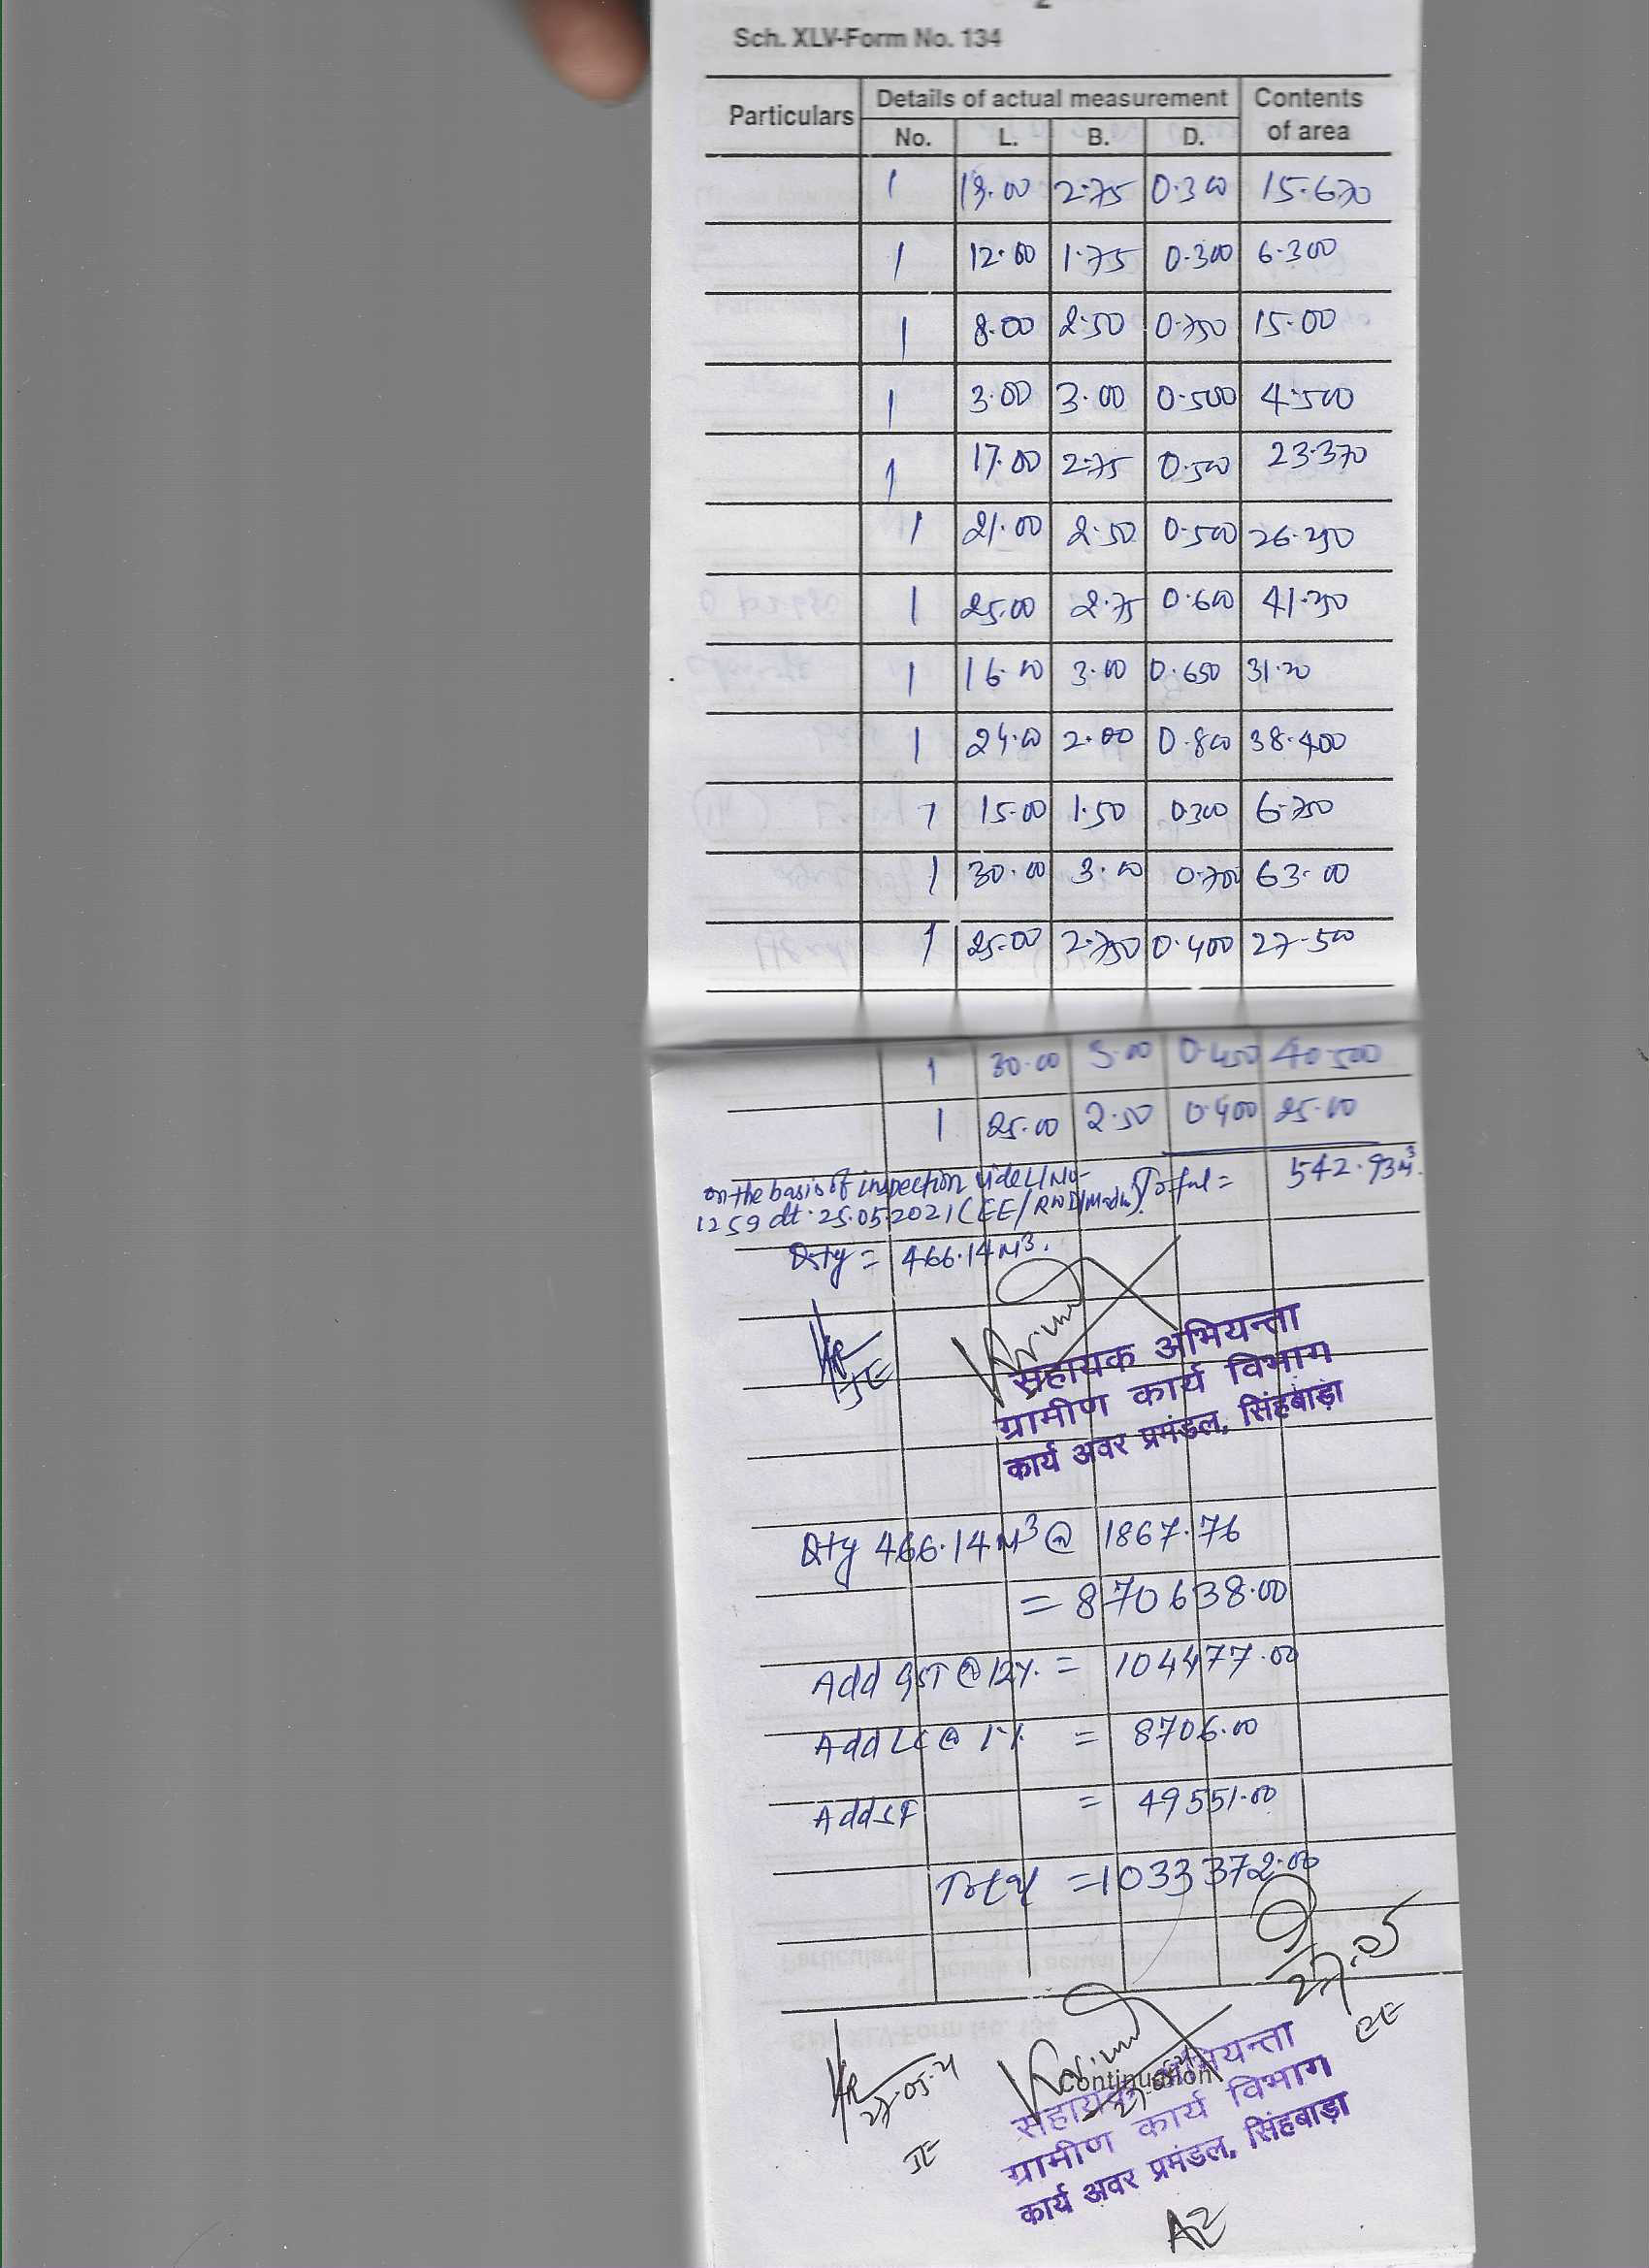 2
Sch. XLV-Form No. 134
Particulars Details of actual measurement Contents of area
No. L. B. D.
1 19.00 2.75 0.300 15.670
1 12.00 1.75 0.300 6.300
1 8.00 2.50 0.750 15.00
1 3.00 3.00 0.500 4.500
1 17.00 2.75 0.500 23.370
1 21.00 2.50 0.500 26.250
1 25.00 2.75 0.600 41.250
1 16.00 3.00 0.650 31.20
1 24.00 2.00 0.800 38.400
1 15.00 1.50 0.300 6.750
1 30.00 3.00 0.700 63.00
1 25.00 2.750 0.400 27.500
1 30.00 3.00 0.450 40.500
1 25.00 2.50 0.400 25.00
on the basis of inspection vide L/No- Total = 542.93M³.
1259 dt. 25.05.2021 (EE/RWD/
Qty = 466.14M³.
JE
सहायक अभियन्ता
ग्रामीण कार्य विभाग
कार्य अवर प्रमंडल, सिंहबाड़ा
Qty 466.14M³ @ 1867.76
= 870638.00
Add GST @ 12%. = 104477.00
Add LC @ 1% = 8706.00
Add SF = 49551.00
Total = 1033372.00
27.05
EE
27.05.21
JE
Continuation
सहायक अभियन्ता
ग्रामीण कार्य विभाग
कार्य अवर प्रमंडल, सिंहबाड़ा
AE